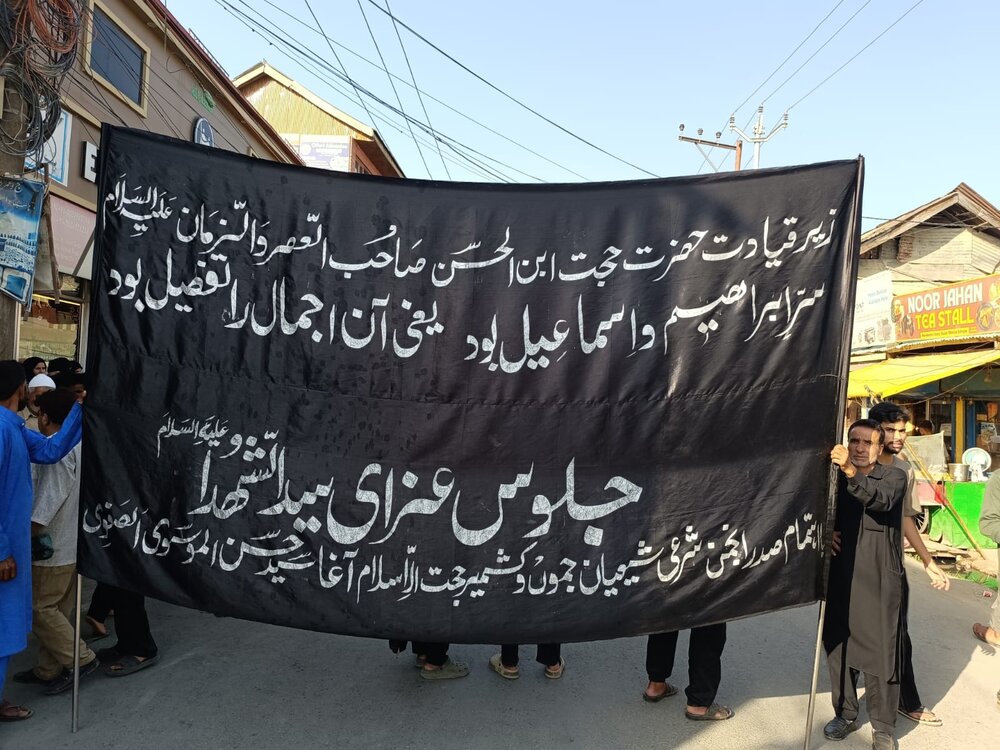 زیر قیادت حضرت حجت ابن الحسن صاحب العصر والزمان علیہ السلام
سرّ ابراھیم و اسماعیل بود یعنی آن اجمال را تفصیل بود
جلوس عزای سید الشھدا علیہ السلام
باہتمام صدر انجمن شرعی شیعیان جموں و کشمیر حجت الاسلام آغا سید حسن الموسوی الصفوی
NOOR JAHAN
TEA STALL